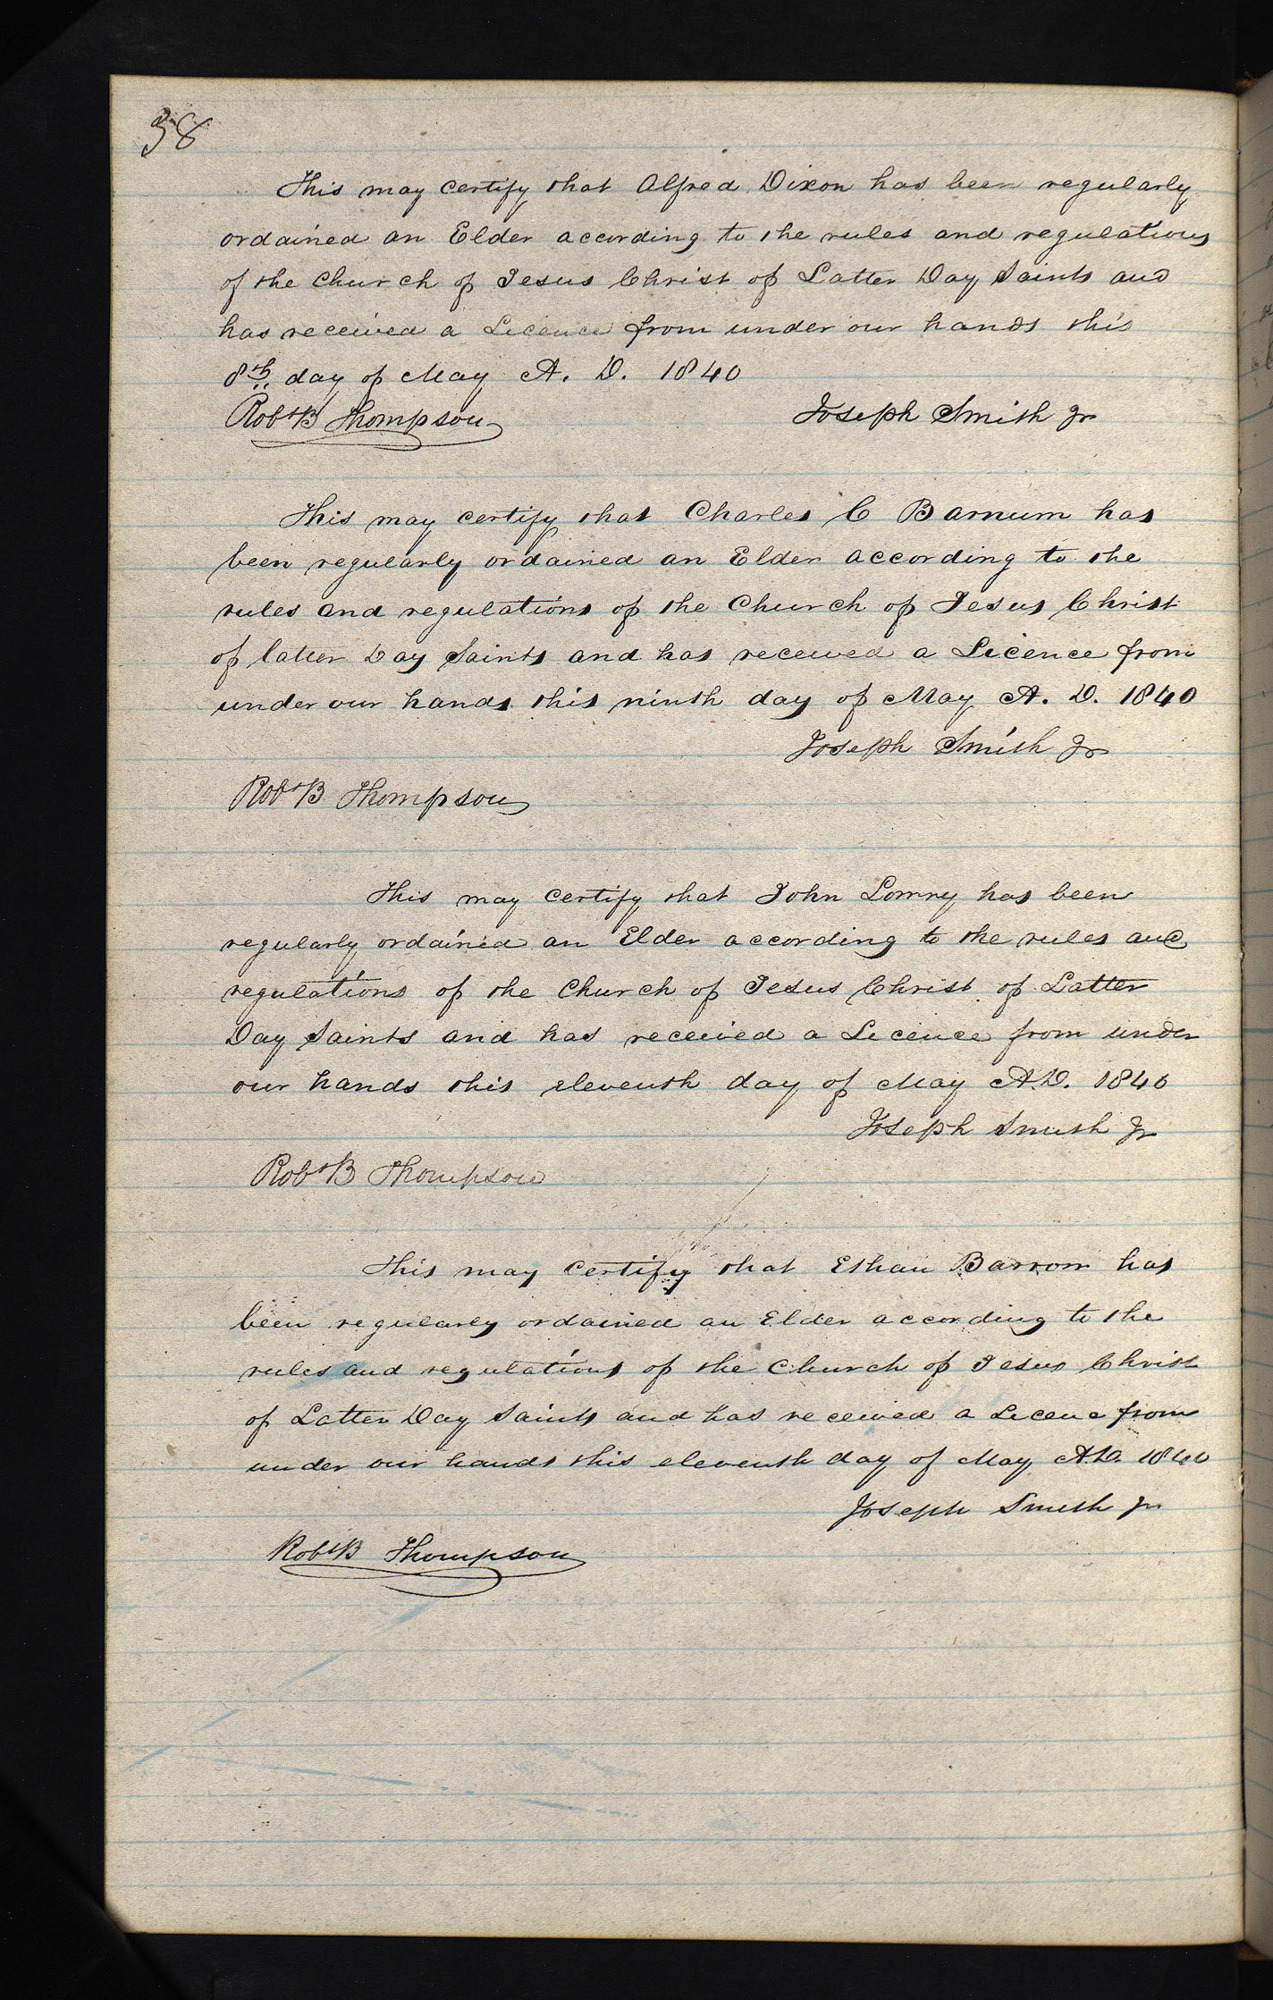 38
This may certify that Alfred Dixon has been regularly
ordained an Elder according to the rules and regulations
of the Church of Jesus Christ of Latter Day Saints and
has received a Licence from under our hands this
8th day of May A. D. 1840
Robt B Thompson Joseph Smith Jr
This may certify that Charles C Barnum has
been regularly ordained an Elder according to the
rules and regulations of the Church of Jesus Christ
of latter Day Saints and has received a Licence from
under our hands this ninth day of May A. D. 1840
Joseph Smith Jr
Robt B Thompson
This may certify that John Lowry has been
regularly ordained an Elder according to the rules and
regulations of the Church of Jesus Christ of Latter
Day Saints and has received a Licence from under
our hands this eleventh day of May A.D. 1840
Joseph Smith Jr
Robt B Thompson
This may certify that Ethan Barrows has
been regularly ordained an Elder according to the
rules and regulations of the Church of Jesus Christ
of Latter Day Saints and has received a Licence from
under our hands this eleventh day of May A.D. 1840
Joseph Smith Jr
Robt B Thompson